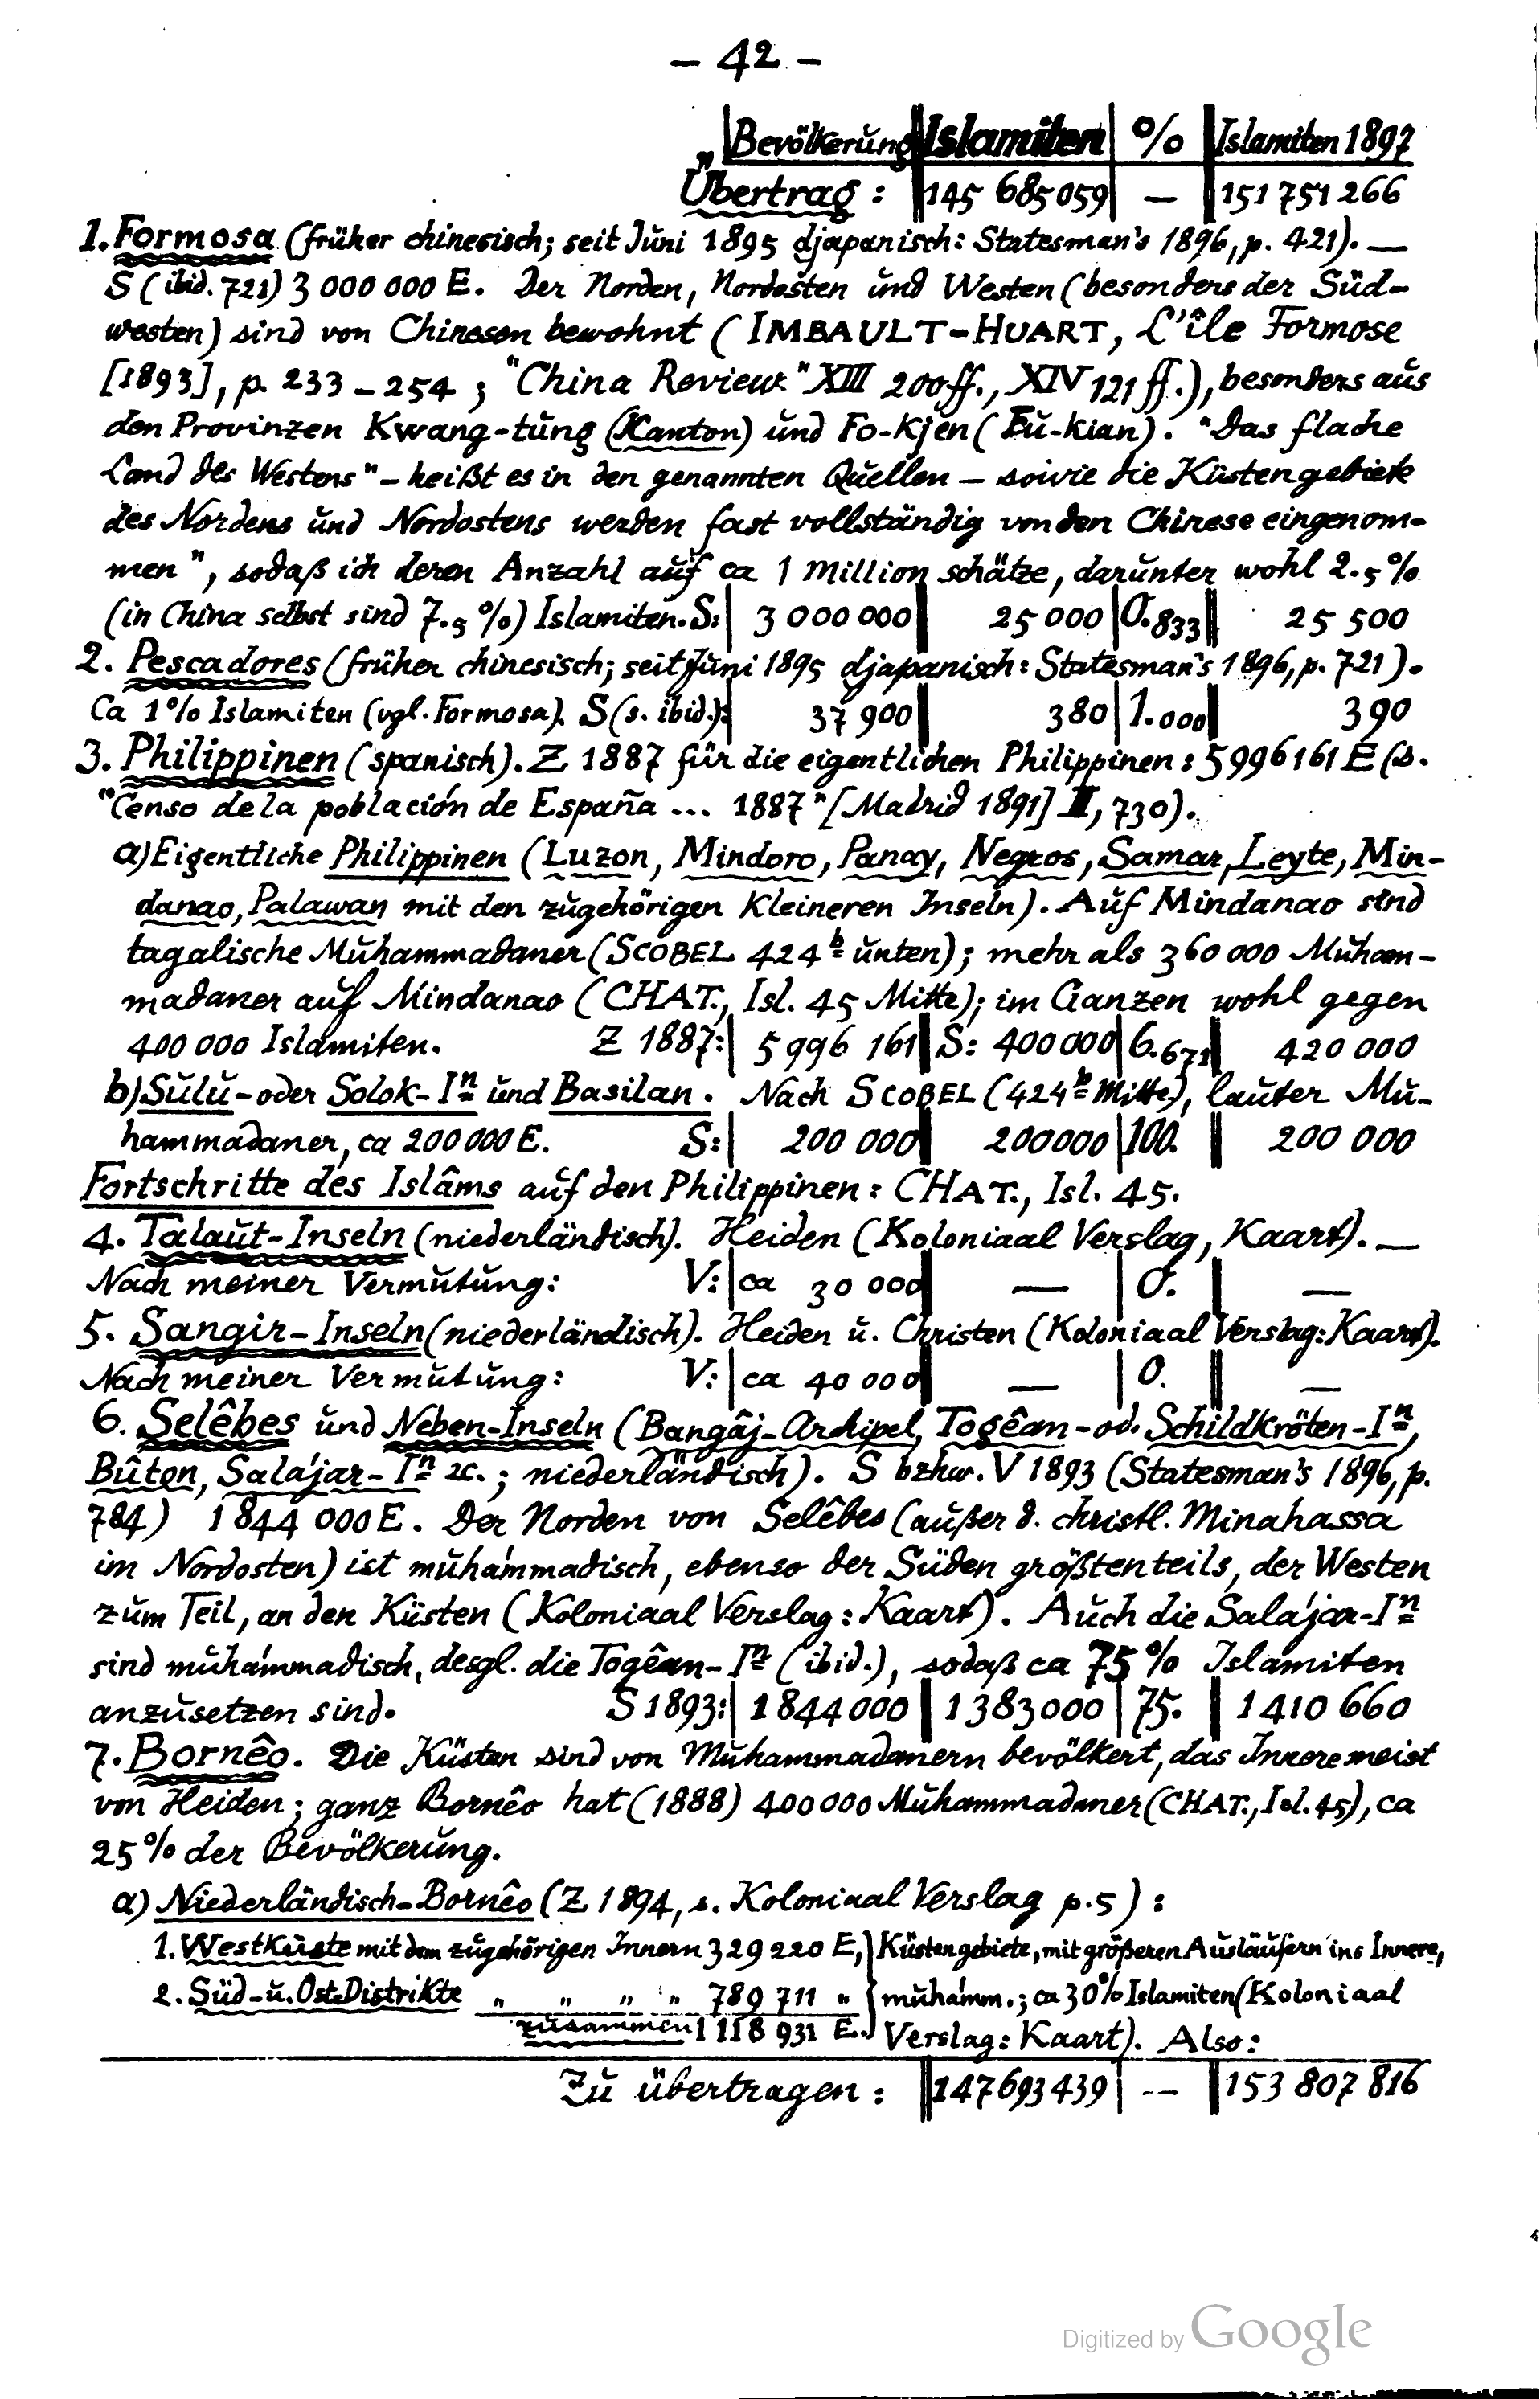 – 42 –
Bevölkerung Islamiten % Islamiten 1897
Übertrag: 145 685 059 — 151 751 266
1. Formosa (früher chinesisch; seit Juni 1895 djapanisch: Statesman's 1896, p. 421). —
S (ibid. 721) 3 000 000 E. Der Norden, Nordosten und Westen (besonders der Süd-
westen) sind von Chinesen bewohnt (IMBAULT-HUART, L'île Formose
[1893], p. 233 – 254; "China Review" XIII 200 ff., XIV 121 ff.), besonders aus
den Provinzen Kwang-tung (Kanton) und Fo-Kjen (Fu-kian). "Das flache
Land des Westens" – heißt es in den genannten Quellen – sowie die Küstengebiete
des Nordens und Nordostens werden fast vollständig von den Chinese eingenom-
men", sodaß ich deren Anzahl auf ca 1 Million schätze, darunter wohl 2.5 %
(in China selbst sind 7.5 %) Islamiten. S: 3 000 000 25 000 0.833 25 500
2. Pescadores (früher chinesisch; seit Juni 1895 djapanisch: Statesman's 1896, p. 721).
Ca 1% Islamiten (vgl. Formosa). S (s. ibid.): 37 900 380 1.000 390
3. Philippinen (spanisch). Z 1887 für die eigentlichen Philippinen: 5 996 161 E (s.
"Censo de la población de España ... 1887" [Madrid 1891] II, 730).
a) Eigentliche Philippinen (Luzon, Mindoro, Panay, Negros, Samar, Leyte, Min-
danao, Palawan mit den zugehörigen Kleineren Inseln). Auf Mindanao sind
tagalische Muhammadaner (SCOBEL 424b unten); mehr als 360 000 Muham-
madaner auf Mindanao (CHAT., Isl. 45 Mitte); im Ganzen wohl gegen
400 000 Islamiten. Z 1887: 5 996 161 S: 400 000 6.671 420 000
b) Sulu- oder Solok-In und Basilan. Nach SCOBEL (424b Mitte), lauter Mu-
hammadaner, ca 200 000 E. S: 200 000 200 000 100. 200 000
Fortschritte des Islâms auf den Philippinen: CHAT., Isl. 45.
4. Talaut-Inseln (niederländisch). Heiden (Koloniaal Verslag, Kaart). —
Nach meiner Vermutung: V: ca 30 000 — 0. —
5. Sangir-Inseln (niederländisch). Heiden u. Christen (Koloniaal Verslag: Kaart).
Nach meiner Vermutung: V: ca 40 000 — 0. —
6. Selêbes und Neben-Inseln (Bangâj-Archipel, Togêan- od. Schildkröten-In,
Bûton, Salájar-In 2c.; niederländisch). S bzhw. V 1893 (Statesman's 1896, p.
784) 1 844 000 E. Der Norden von Selêbes (außer d. christl. Minahassa
im Nordosten) ist muhámmadisch, ebenso der Süden größtenteils, der Westen
zum Teil, an den Küsten (Koloniaal Verslag: Kaart). Auch die Salájar-In
sind muhámmadisch, desgl. die Togêan-In (ibid.), sodaß ca 75 % Islamiten
anzusetzen sind. S 1893: 1 844 000 1 383 000 75. 1 410 660
7. Bornêo. Die Küsten sind von Muhammadanern bevölkert, das Innere meist
von Heiden; ganz Bornêo hat (1888) 400 000 Muhammadaner (CHAT., Isl. 45), ca
25 % der Bevölkerung.
a) Niederländisch-Bornêo (Z 1894, s. Koloniaal Verslag p. 5):
1. Westküste mit dem zugehörigen Innern 329 220 E, Küstengebiete, mit größeren Ausläufern ins Innere,
2. Süd- u. Ost-Distrikte " " " " 789 711 " muhámm.; ca 30% Islamiten (Koloniaal
zusammen 1 118 931 E. Verslag: Kaart). Also:
Zu übertragen: 147 693 439 — 153 807 816
Digitized by Google